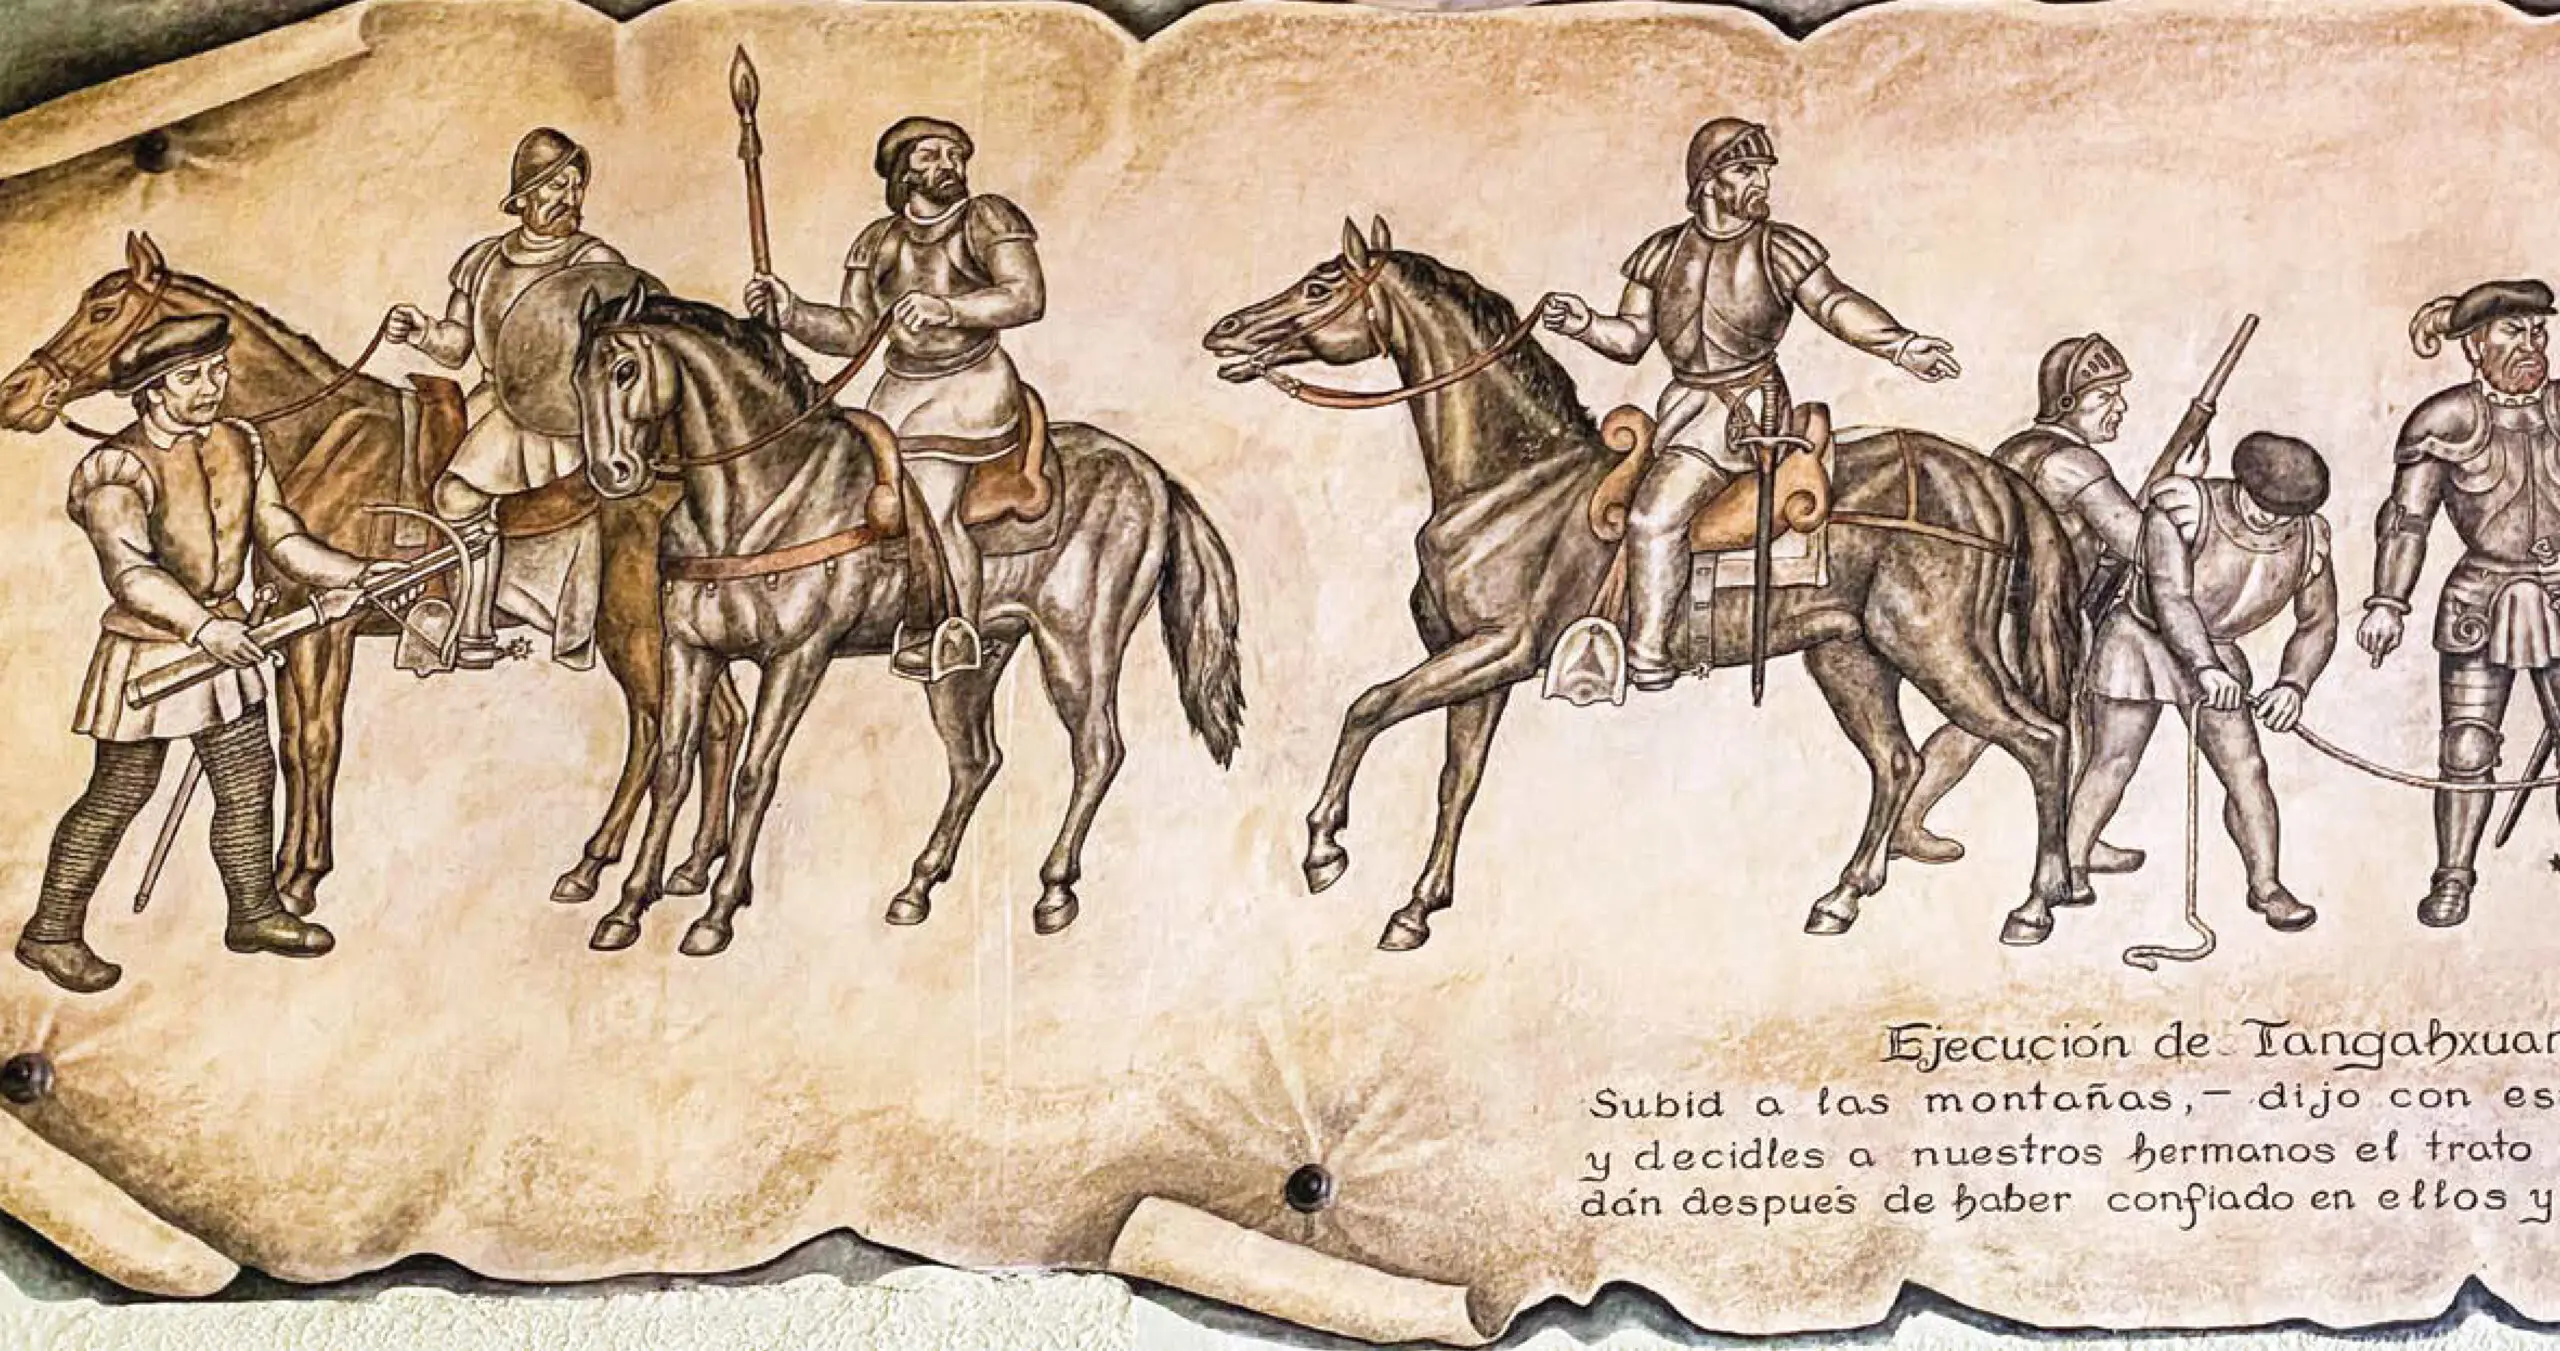 Ejecución de Tangahxuan
Subid a las montañas,- dijo con es
y decidles a nuestros hermanos el trato
dán después de haber confiado en ellos y